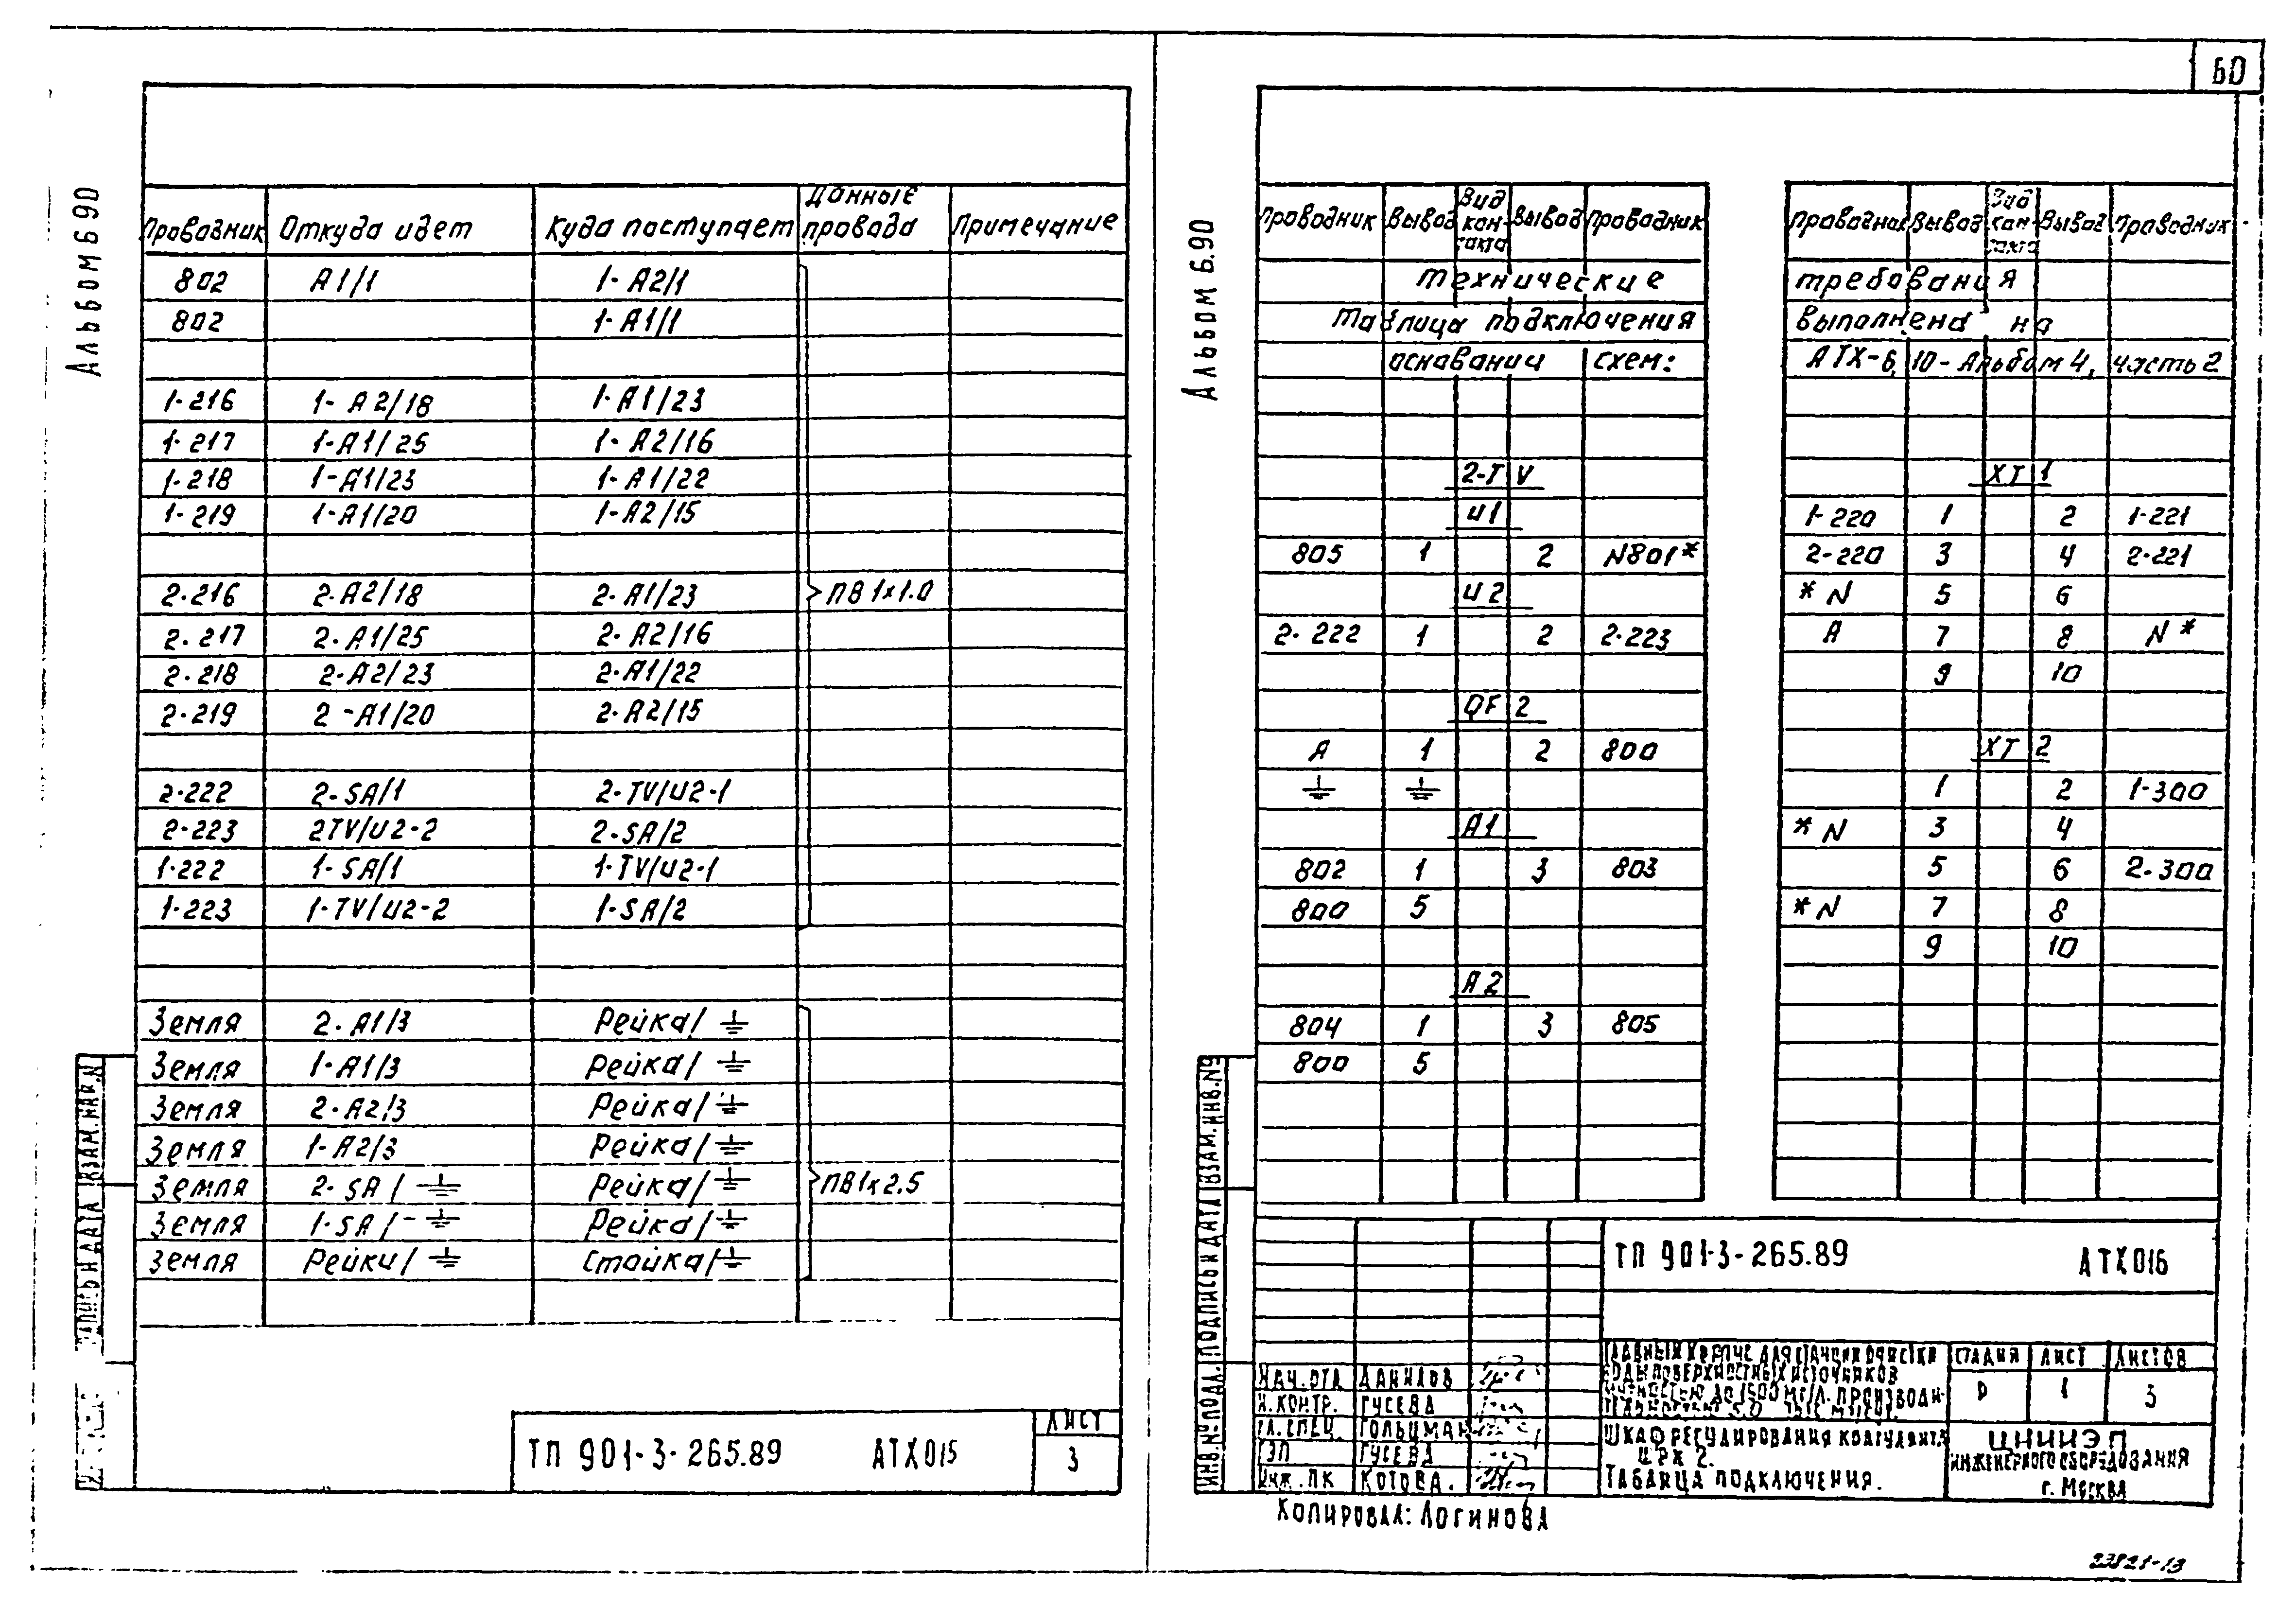 60
Альбом 6.90
Проводник Откуда идет Куда поступает Данные провода Примечание
802 А1/1 1-А2/1
802 1-А1/1
1-216 1-А2/18 1-А1/23
1-217 1-А1/25 1-А2/16
1-218 1-А1/23 1-А1/22
1-219 1-А1/20 1-А2/15
2-216 2-А2/18 2-А1/23 ПВ 1х1.0
2-217 2-А1/25 2-А2/16
2-218 2-А2/23 2-А1/22
2-219 2-А1/20 2-А2/15
2-222 2-SA/1 2-TV/И2-1
2-223 2TV/И2-2 2-SA/2
1-222 1-SA/1 1-TV/И2-1
1-223 1-TV/И2-2 1-SA/2
Земля 2-А1/3 Рейка/⏚
Земля 1-А1/3 Рейка/⏚
Земля 2-А2/3 Рейка/⏚
Земля 1-А2/3 Рейка/⏚
Земля 2-SA/⏚ Рейка/⏚ ПВ1х2.5
Земля 1-SA/⏚ Рейка/⏚
Земля Рейки/⏚ Стойка/⏚
ТП 901-3-265.89 АТХ015
ЛИСТ
3
Альбом 6.90
Проводник Вывод Вид контакта Вывод Проводник
Технические
Таблица подключения
основании схем:
2-TV
И1
805 1 2 N801*
И2
2-222 1 2 2-223
QF2
А 1 2 800
⏚ ⏚
А1
802 1 3 803
800 5
А2
804 1 3 805
800 5
Проводник Вывод Вид контакта Вывод Проводник
требования
выполнена на
АТХ-6, 10-Альбом 4, часть 2
XT1
1-220 1 2 1-221
2-220 3 4 2-221
*N 5 6
А 7 8 N*
9 10
XT2
1 2 1-300
*N 3 4
5 6 2-300
*N 7 8
9 10
ИНВ.№ПОДЛ. ПОДПИСЬ И ДАТА ВЗАМ.ИНВ.№
ТП 901-3-265.89 АТХ016
НАЧ.ОТД ДАНИЛОВ
Н.КОНТР. ГУСЕВА
ГЛ.СПЕЦ ГОЛЬЦМАН
ГЭП ГУСЕВА
ИНЖ.ПК КОТОВА.
ДЛЯ СТАНЦИИ ОЧИСТКИ
ВОДЫ ПОВЕРХНОСТНЫХ ИСТОЧНИКОВ
МУТНОСТЬЮ ДО 1500МГ/Л. ПРОИЗВОДИ-
СТАДИЯ ЛИСТ ЛИСТОВ
Р 1 3
ШКАФ РЕГУЛИРОВАНИЯ КОАГУЛЯНТА
ТАБЛИЦА ПОДКЛЮЧЕНИЯ.
ЦНИИЭП
ИНЖЕНЕРНОГО ОБОРУДОВАНИЯ
г. МОСКВА
КОПИРОВАЛ: ЛОГИНОВА
23821-13